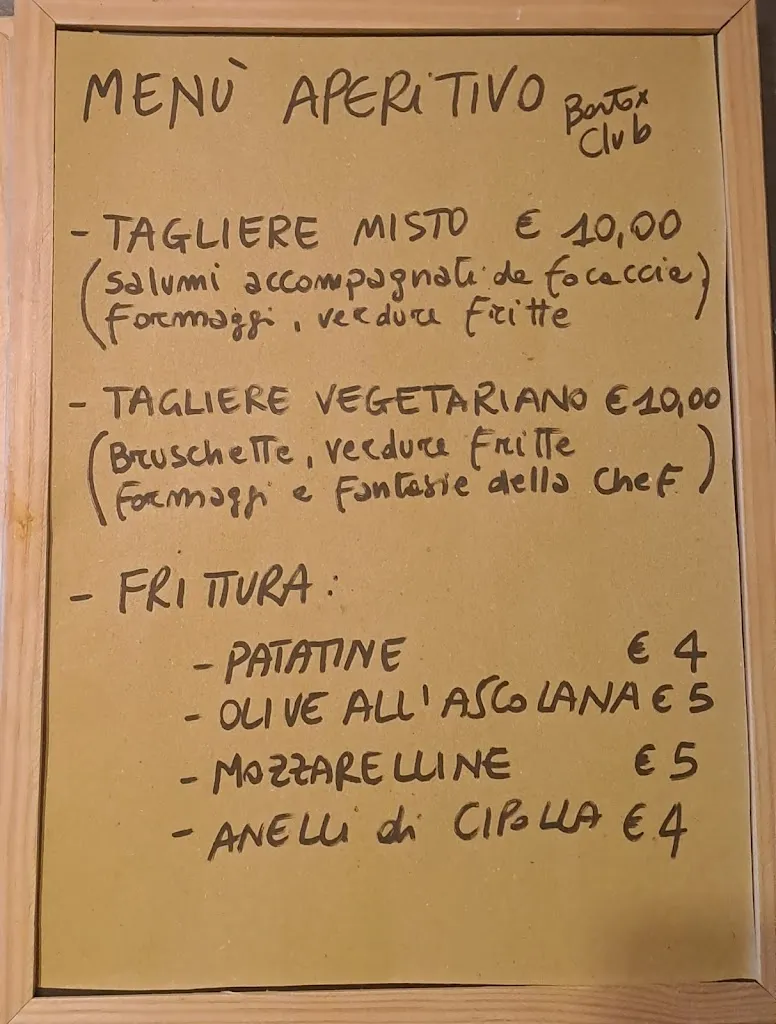 MENÙ APERITIVO
Bartox
Club
- TAGLIERE MISTO € 10,00
(salumi accompagnati da focaccia,
Formaggi, verdure fritte)
- TAGLIERE VEGETARIANO €10,00
(Bruschette, verdure fritte
formaggi e fantasie della chef)
- FRITTURA:
- PATATINE € 4
- OLIVE ALL'ASCOLANA € 5
- MOZZARELLINE € 5
- ANELLI di CIPOLLA € 4